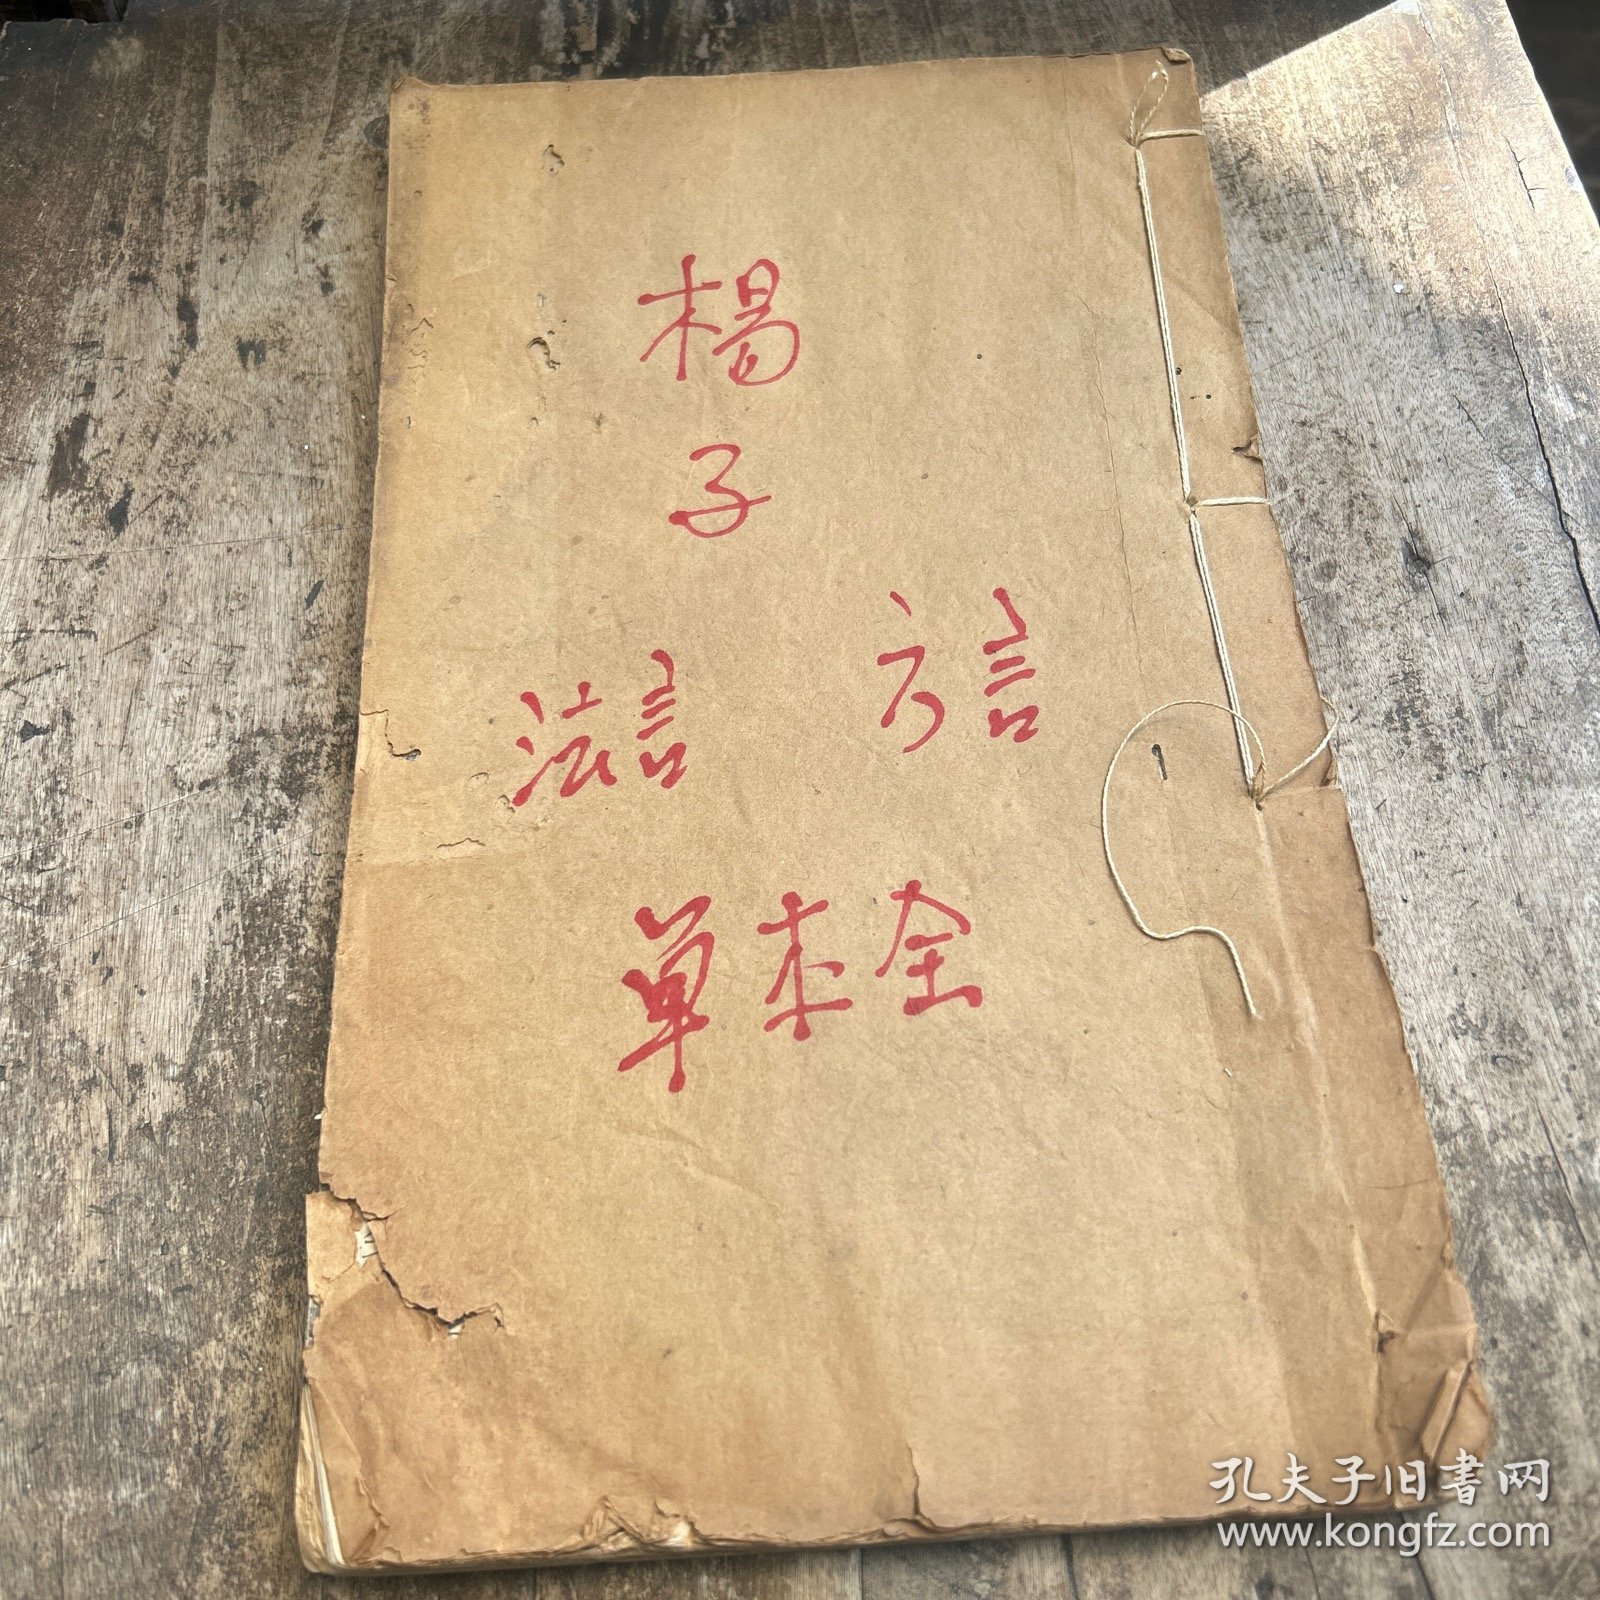 楊
子
方言
法言
全本单
孔夫子旧書网
www.kongfz.com